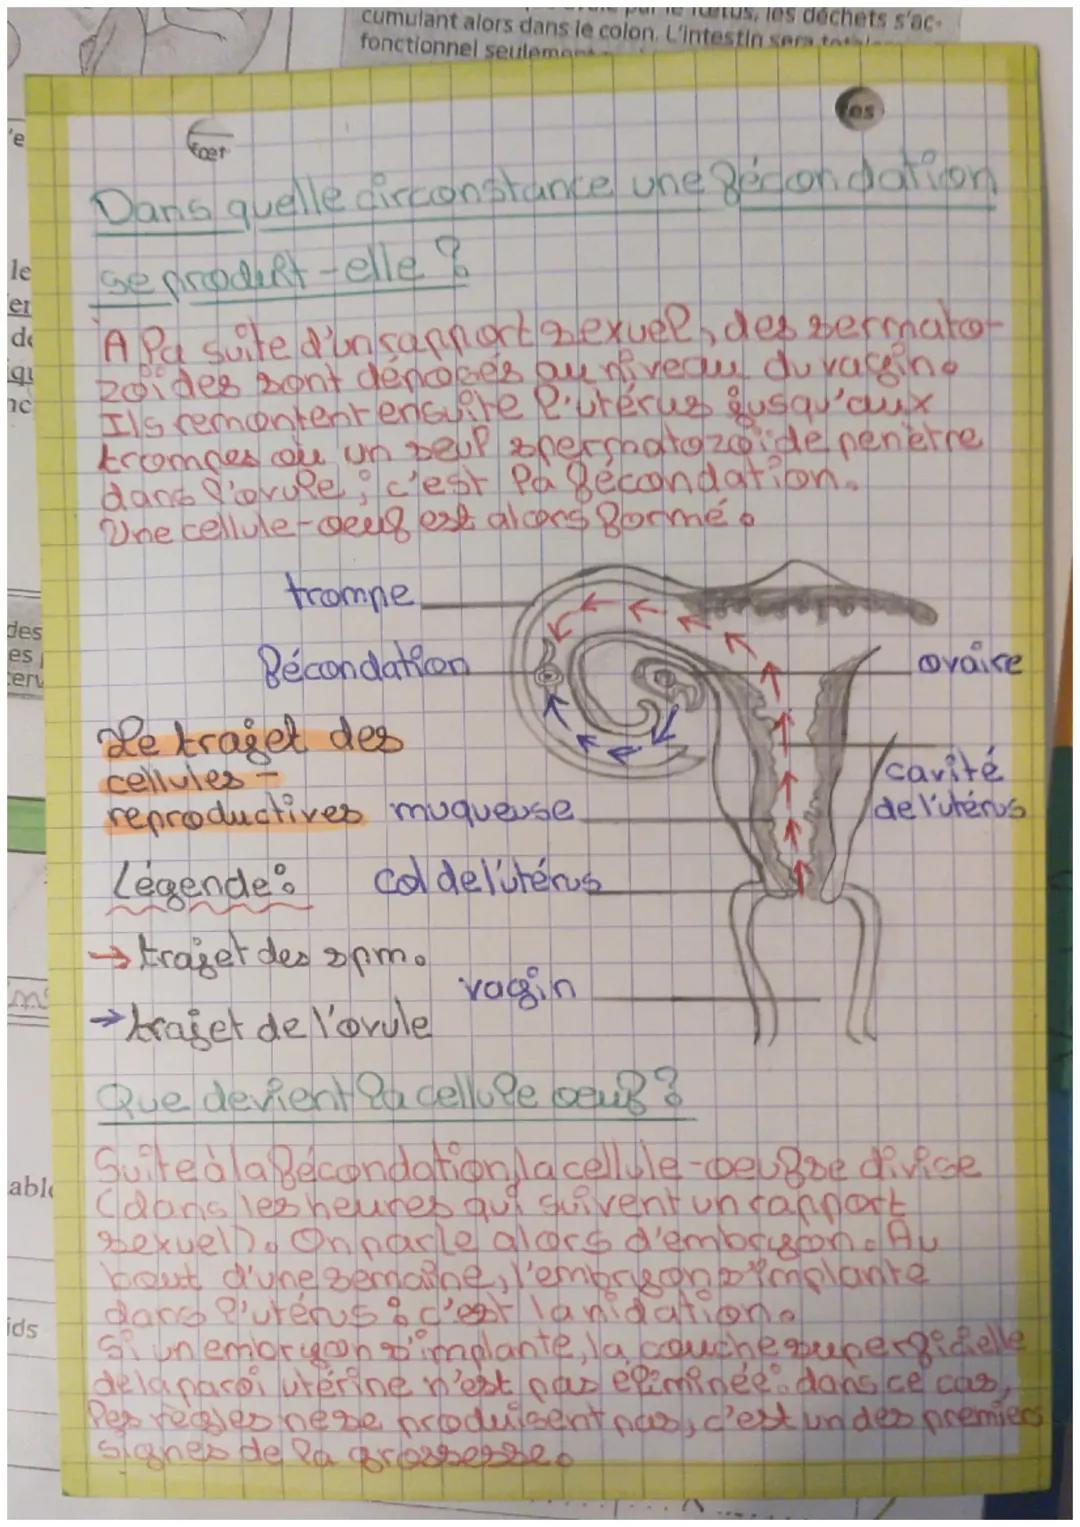 cumulant alors dans le colon. L'intestin sera
fonctionnel seulement
foet
os
Dans quelle circonstance une fécondation
se produit-elle ?
A la suite d'un rapport sexuel, des sermato-
zoïdes sont déposés au niveau du vagin.
Ils remontent ensuite l'utérus jusqu'aux
trompes où un seul spermatozoïde penètre
dans l'ovule ; c'est la fécondation.
Une cellule-oeuf est alors formé.
trompe
fécondation
ovaire
Le trajet des
cellules-
reproductives
muqueuse
cavité
de l'utérus
Légende :
col de l'utérus
→ trajet des spm.
vagin
→ trajet de l'ovule
Que devient la cellule oeuf ?
Suite à la fécondation, la cellule-oeuf se divise
(dans les heures qui suivent un rapport
sexuel). On parle alors d'embryon. Au
bout d'une semaine, l'embryon s'implante
dans l'utérus : c'est la nidation.
Si un embryon s'implante, la couche superficielle
de la paroi utérine n'est pas éliminée : dans ce cas,
les règles ne se produisent pas, c'est un des premiers
signes de la grossesse.